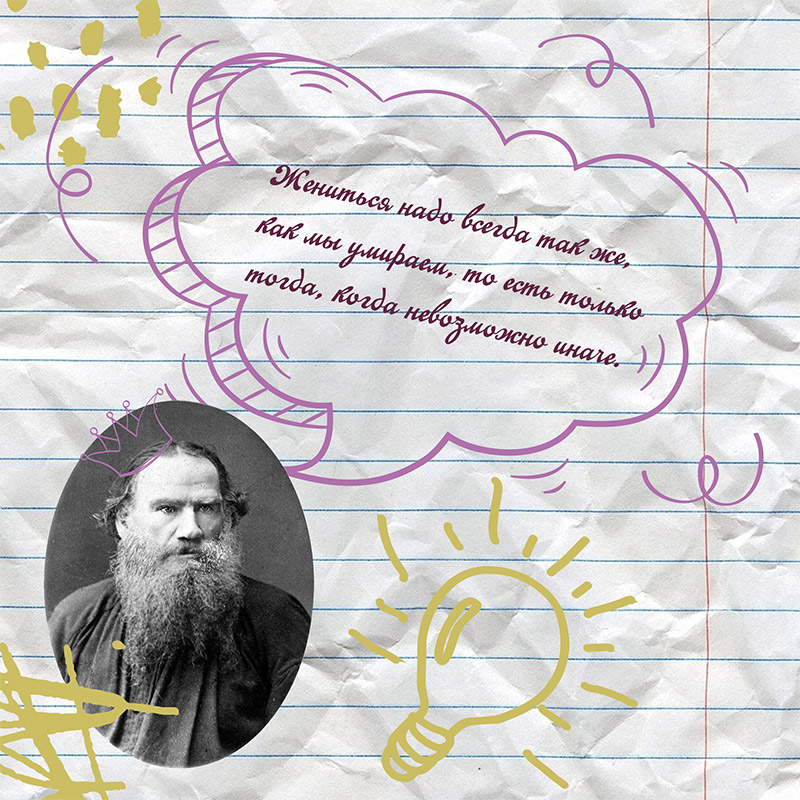 Жениться надо всегда так же,
как мы умираем, то есть только
тогда, когда невозможно иначе.